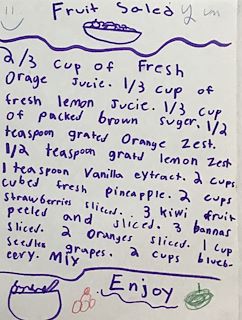 Fruit Salad Yum
2/3 cup of Fresh
Orage Jucie. 1/3 cup of
fresh lemon Jucie. 1/3 cup
of packed brown suger. 1/2
teaspoon grated Orange Zest.
1/2 teaspoon gratd lemon Zest
1 teaspoon Vanilla extract. 2 cups
cubed fresh pineapple. 2 cups
strawberries sliced.. 3 kiwi fruit
peeled and sliced. 3 bannas
sliced. 2 Oranges sliced. 1 cup
Seedles grapes. 2 cups blueb-
eery. Mix
Enjoy